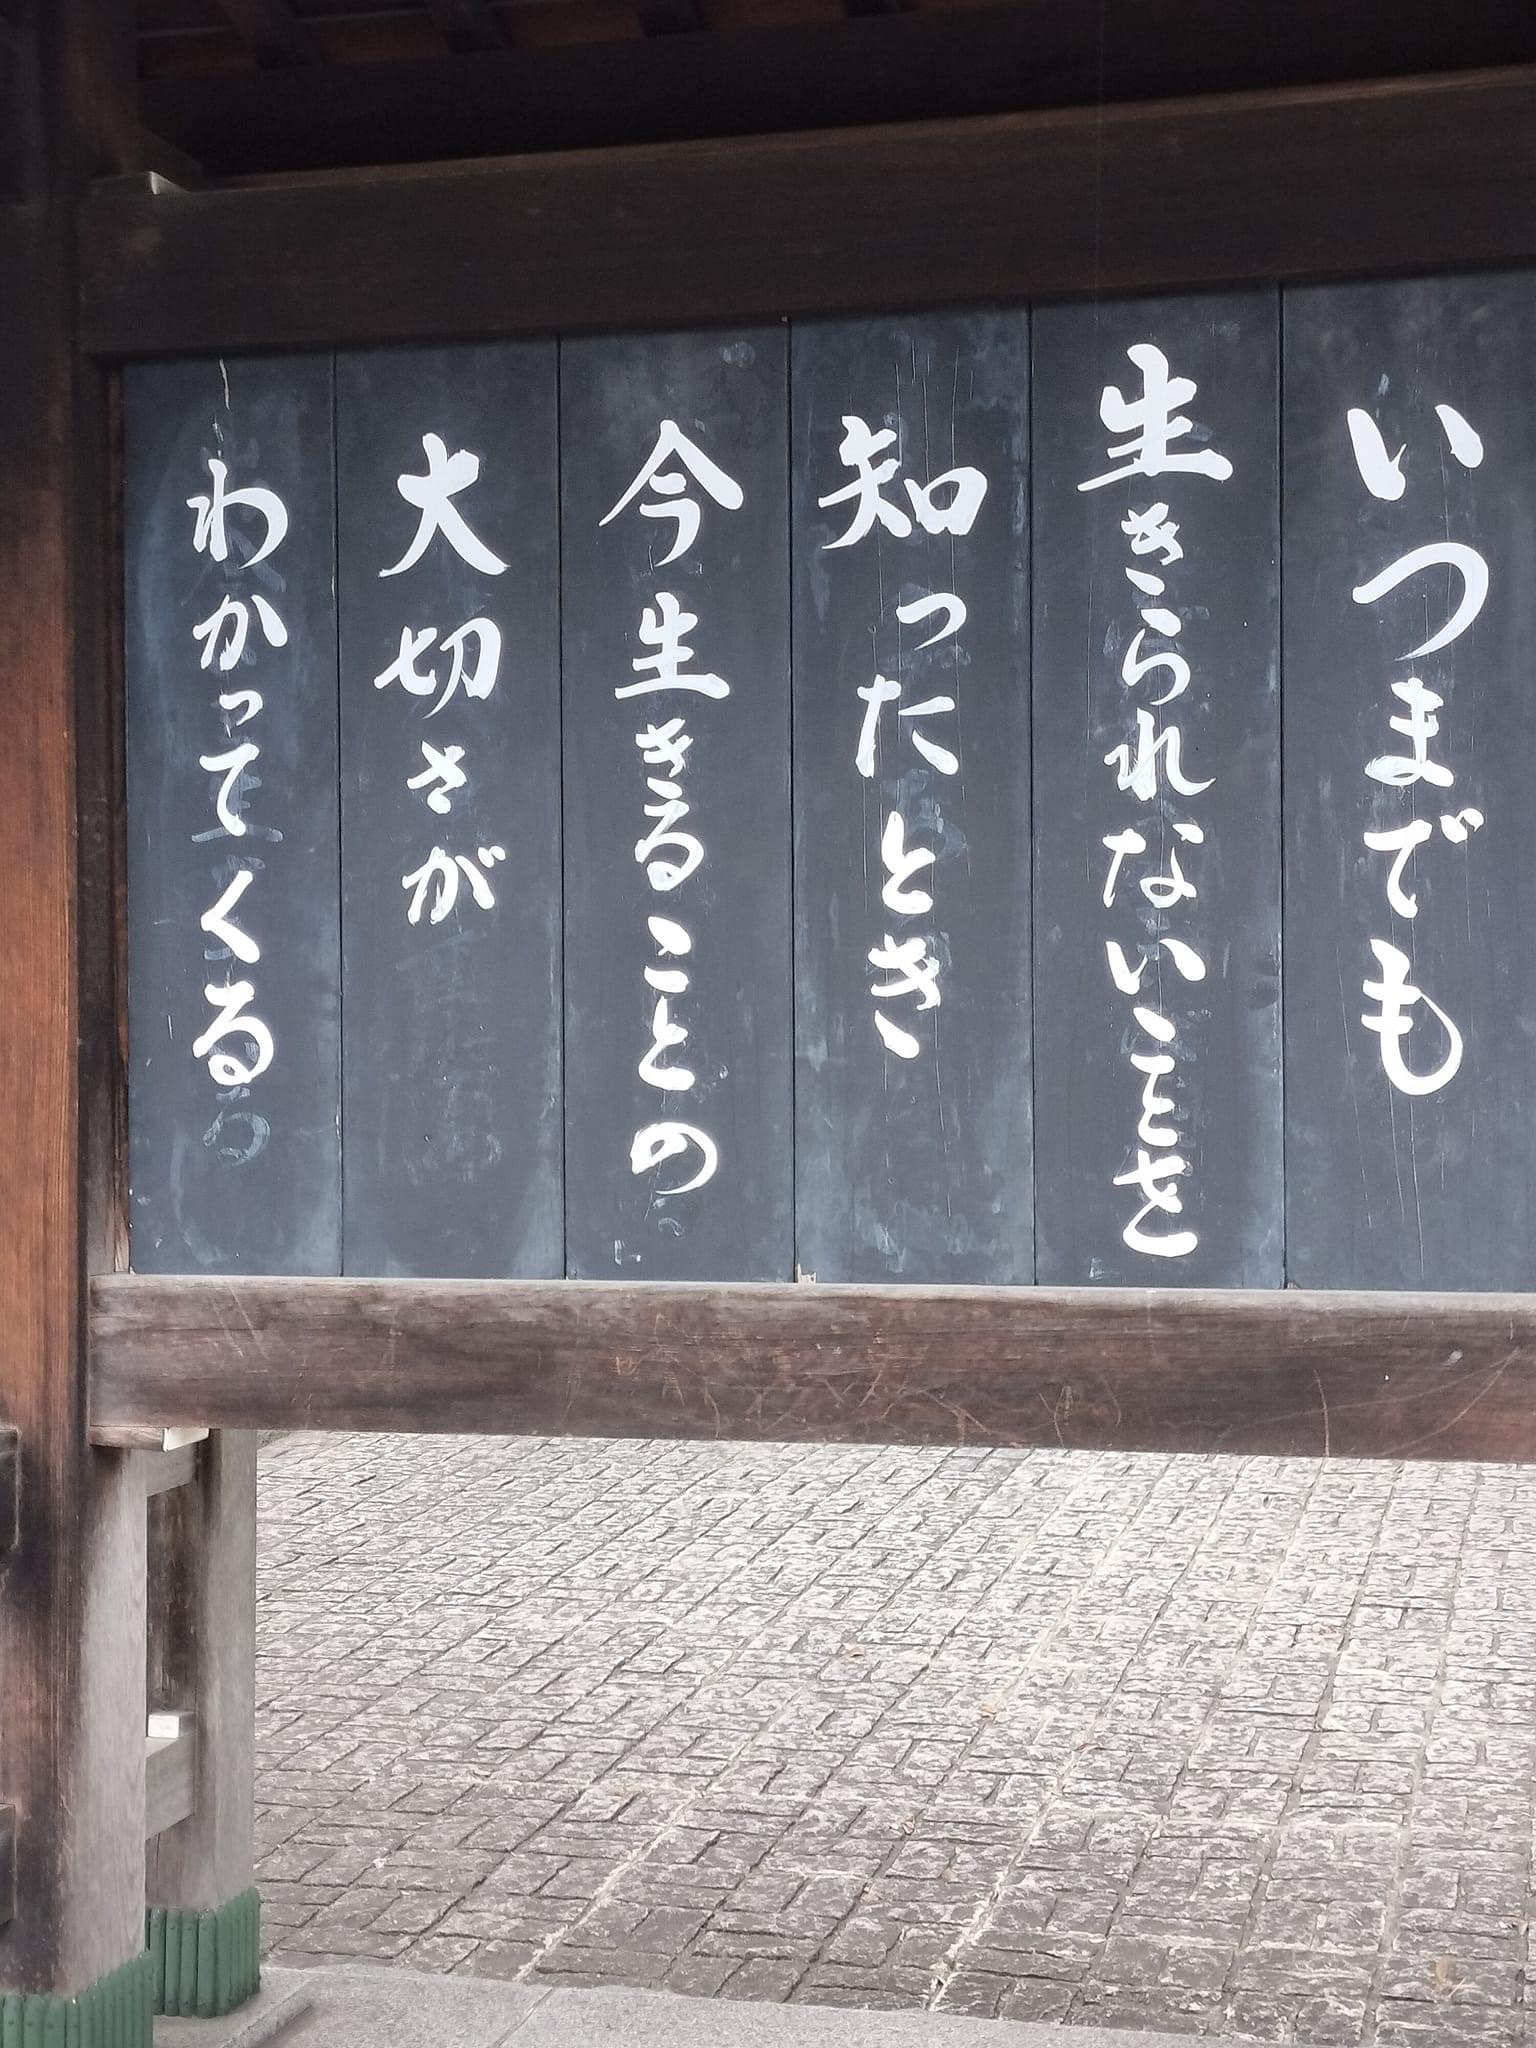 いつまでも
生きられないことを
知ったとき
今生きることの
大切さが
わかってくる